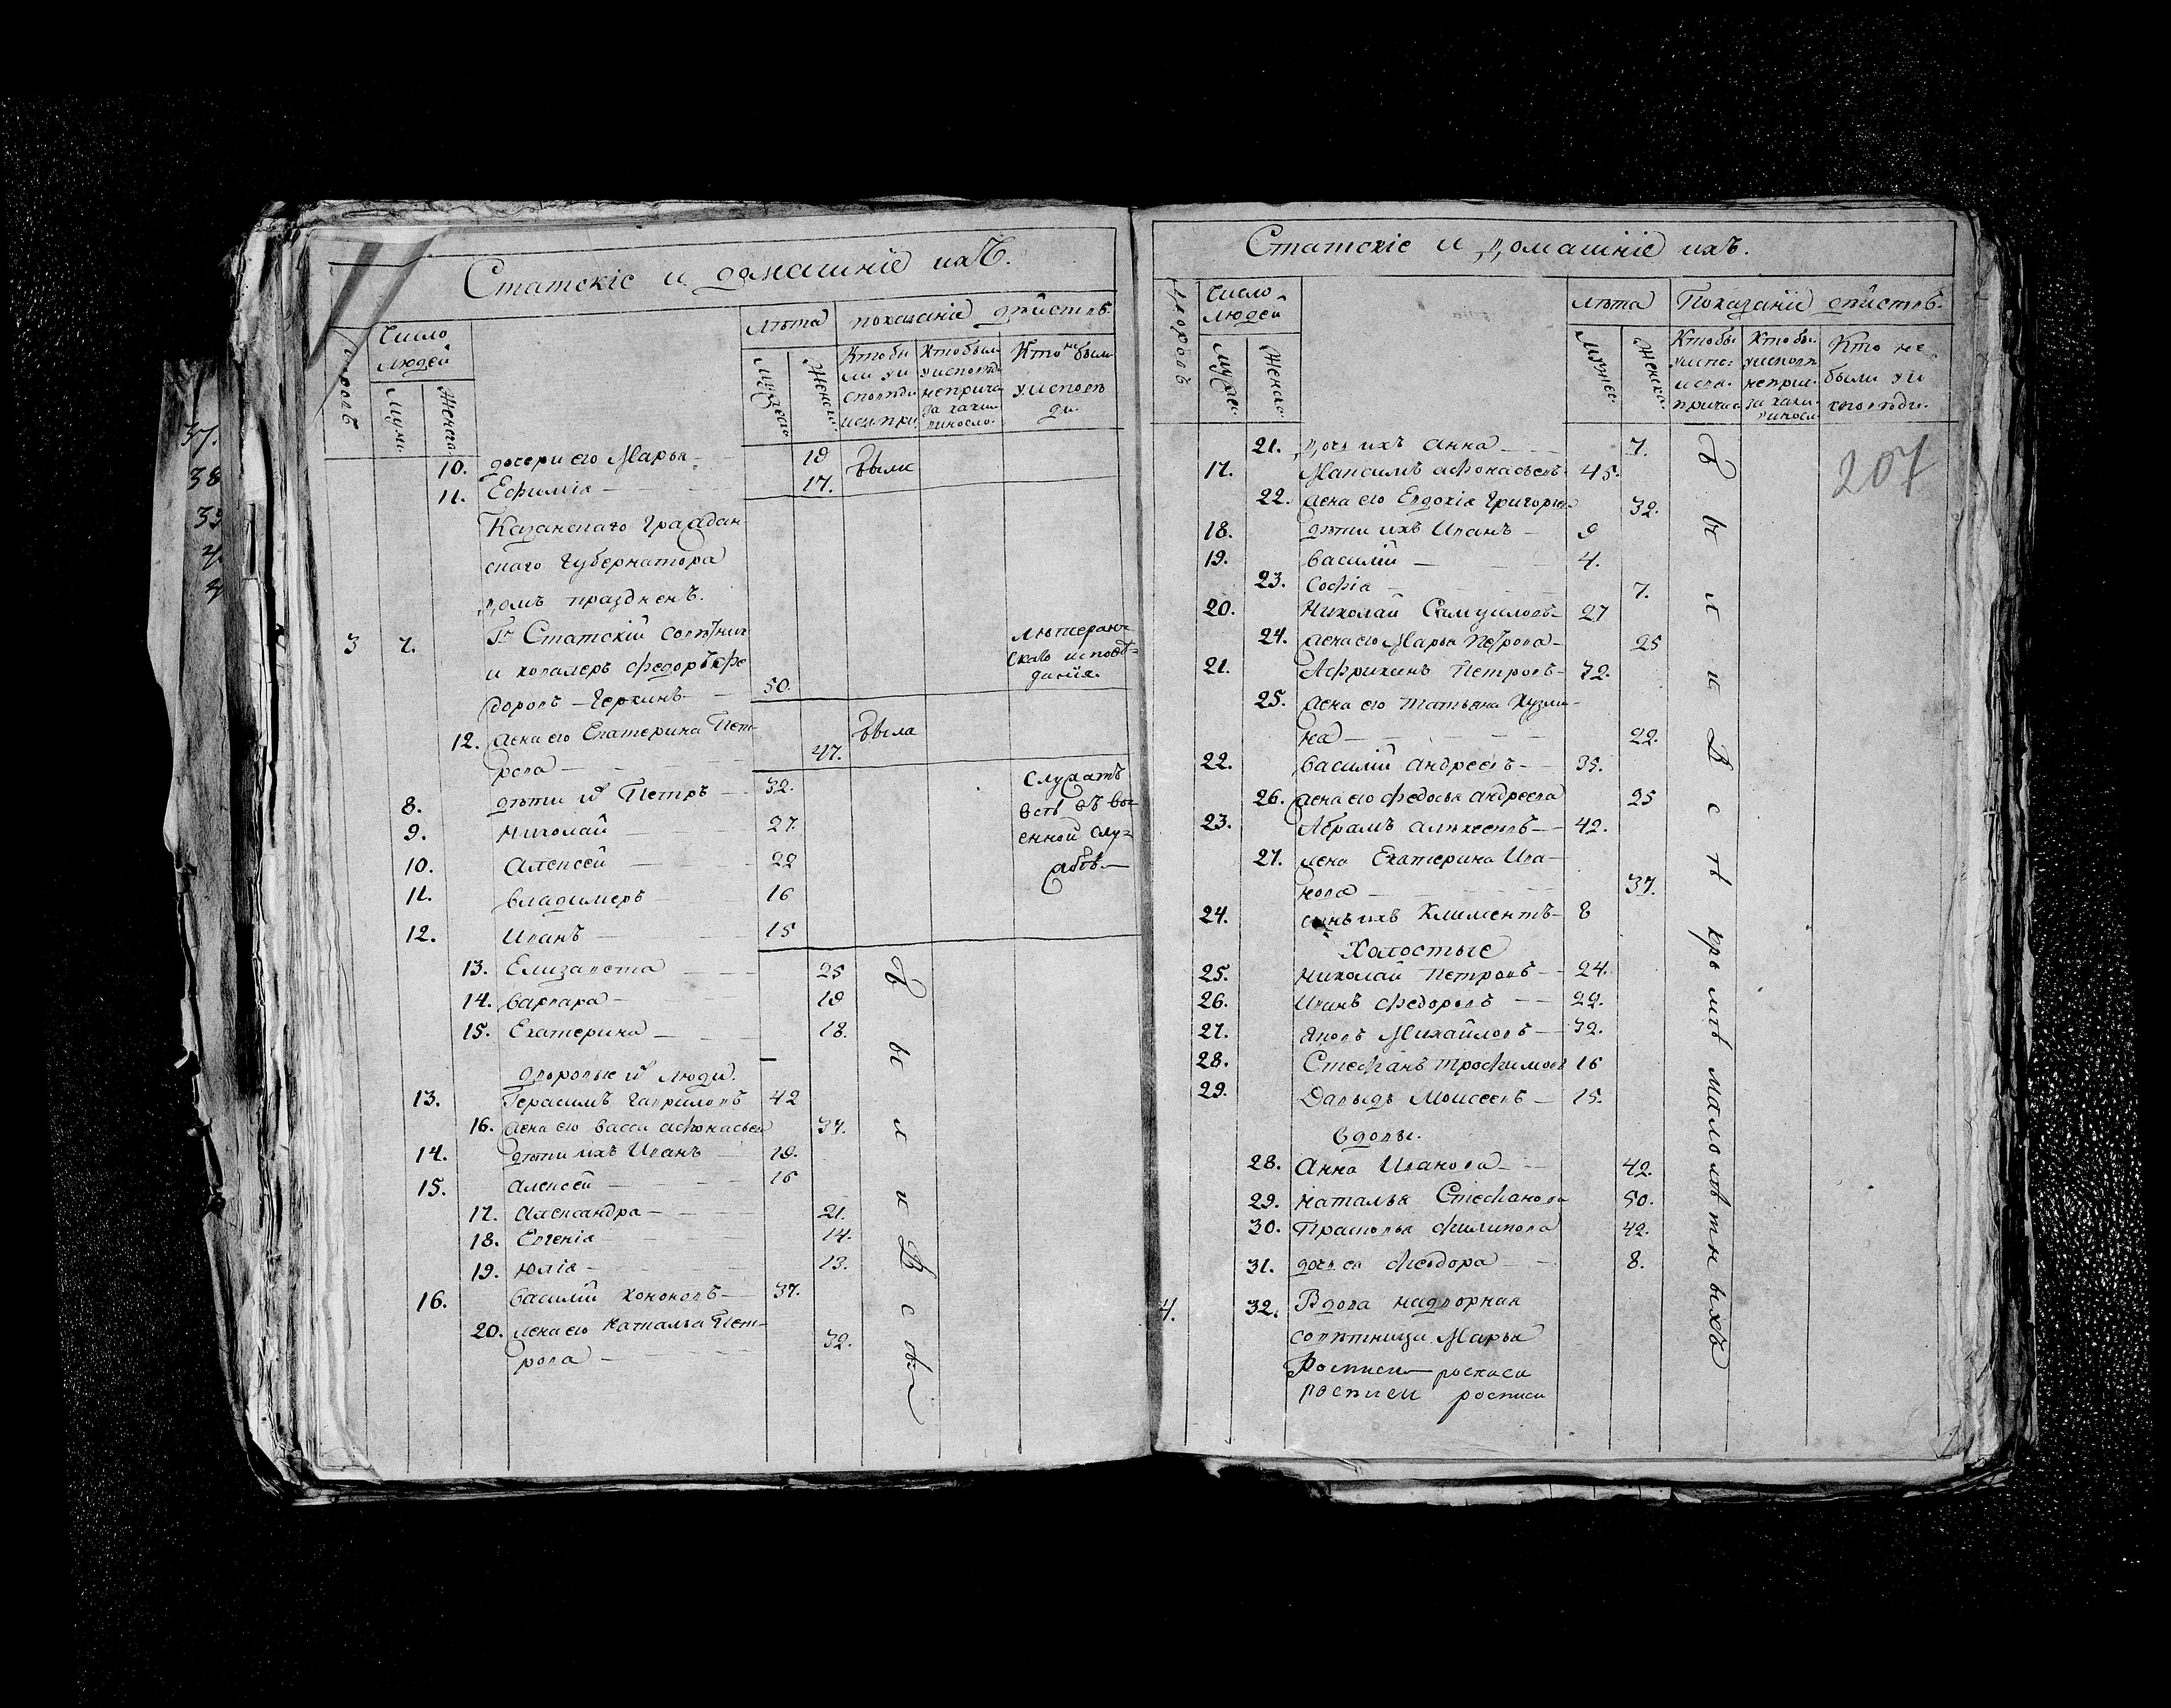 Статскіе и домашніе ихъ.
Дворовъ
Число людей
Мужеска
Женска
лѣта
показаніе дѣйствъ
Мужеска
Женска
Кто бы
ли у и
сповѣди
и св. при.
Кто были
у исповѣди
не прича.
за каким
виносло.
Кто не были
у исповѣ
ди.
10. дочери его Марья — 19 были
11. Ефимія — 17.
Казанскаго Граждан
скаго Губернатора
домъ празденъ.
3 7. Гн Статскій совѣтник
и кавалеръ Федоръ Фе
доровъ Геркинъ — 50.
лютеран-
скаго исповѣ-
данія.
12. жена его Екатерина Пет-
рова — 47. была
8. дѣти их Петръ — 32.
9. Николай — 27.
10. Алексей — 22
11. Владимеръ — 16
12. Иванъ — 15
служатъ
всѣ въ во-
енной слу-
жбѣ.—
13. Елизавета — 25
14. Варвара — 19
15. Екатерина — 18.
дворовые их люди.
13. Герасимъ Гавриловъ 42
16. жена его Васса Афонасьев 37.
14. дѣти ихъ Иванъ — 19.
15. Алексей — 16
17. Александра — 21.
18. Евгенія — 14.
19. Юлія — 13.
16. Василій Кононовъ — 37.
20. жена его Наталья Пет-
рова — 32.
были Всѣ
37.
38
39
4
4
Статскіе и домашніе ихъ.
Дворовъ
Число людей
Мужес.
Женска.
лѣта
Показаніе дѣйствъ.
Мужес.
Женска.
Кто бы
у испо:
и св.
прича
Кто бы
у исповѣ
не при.
за каки.
виносл
Кто не
были у и
споведи.
207
21. дочь ихъ Анна — 7.
17. Максимъ Афонасьевъ 45.
22. жена его Евдокія Григорье 32.
18. дѣти ихъ Иванъ — 9
19. Василій — 4.
23. Софіа — 7.
20. Николай Самуиловъ 27
24. жена его Марья Петрова — 25
21. Африкинъ Петровъ — 32.
25. жена его Татьяна Кузми-
на — 22.
22. Василій Андреевъ — 35.
26. жена его Федосья Андреева 25
23. Абрамъ Алексеевъ — 42.
27. жена Екатерина Ива-
нова — 37.
24. сынъ ихъ Климентъ — 8
Холостые
25. Николай Петровъ — 24.
26. Иванъ Федоровъ — 22.
27. Яковъ Михайловъ — 32.
28. Стефанъ Трофимовъ 16
29. Давыдъ Моисеевъ — 15.
Вдовы.
28. Анна Иванова — 42.
29. Наталья Стефанова 50.
30. Прасковья Филипова 42.
31. дочь ея Феодора — 8.
4. 32. Вдова надворная
совѣтница Марья
Росписи росписи
росписи росписи
были Всѣ кромѣ малолѣтныхъ